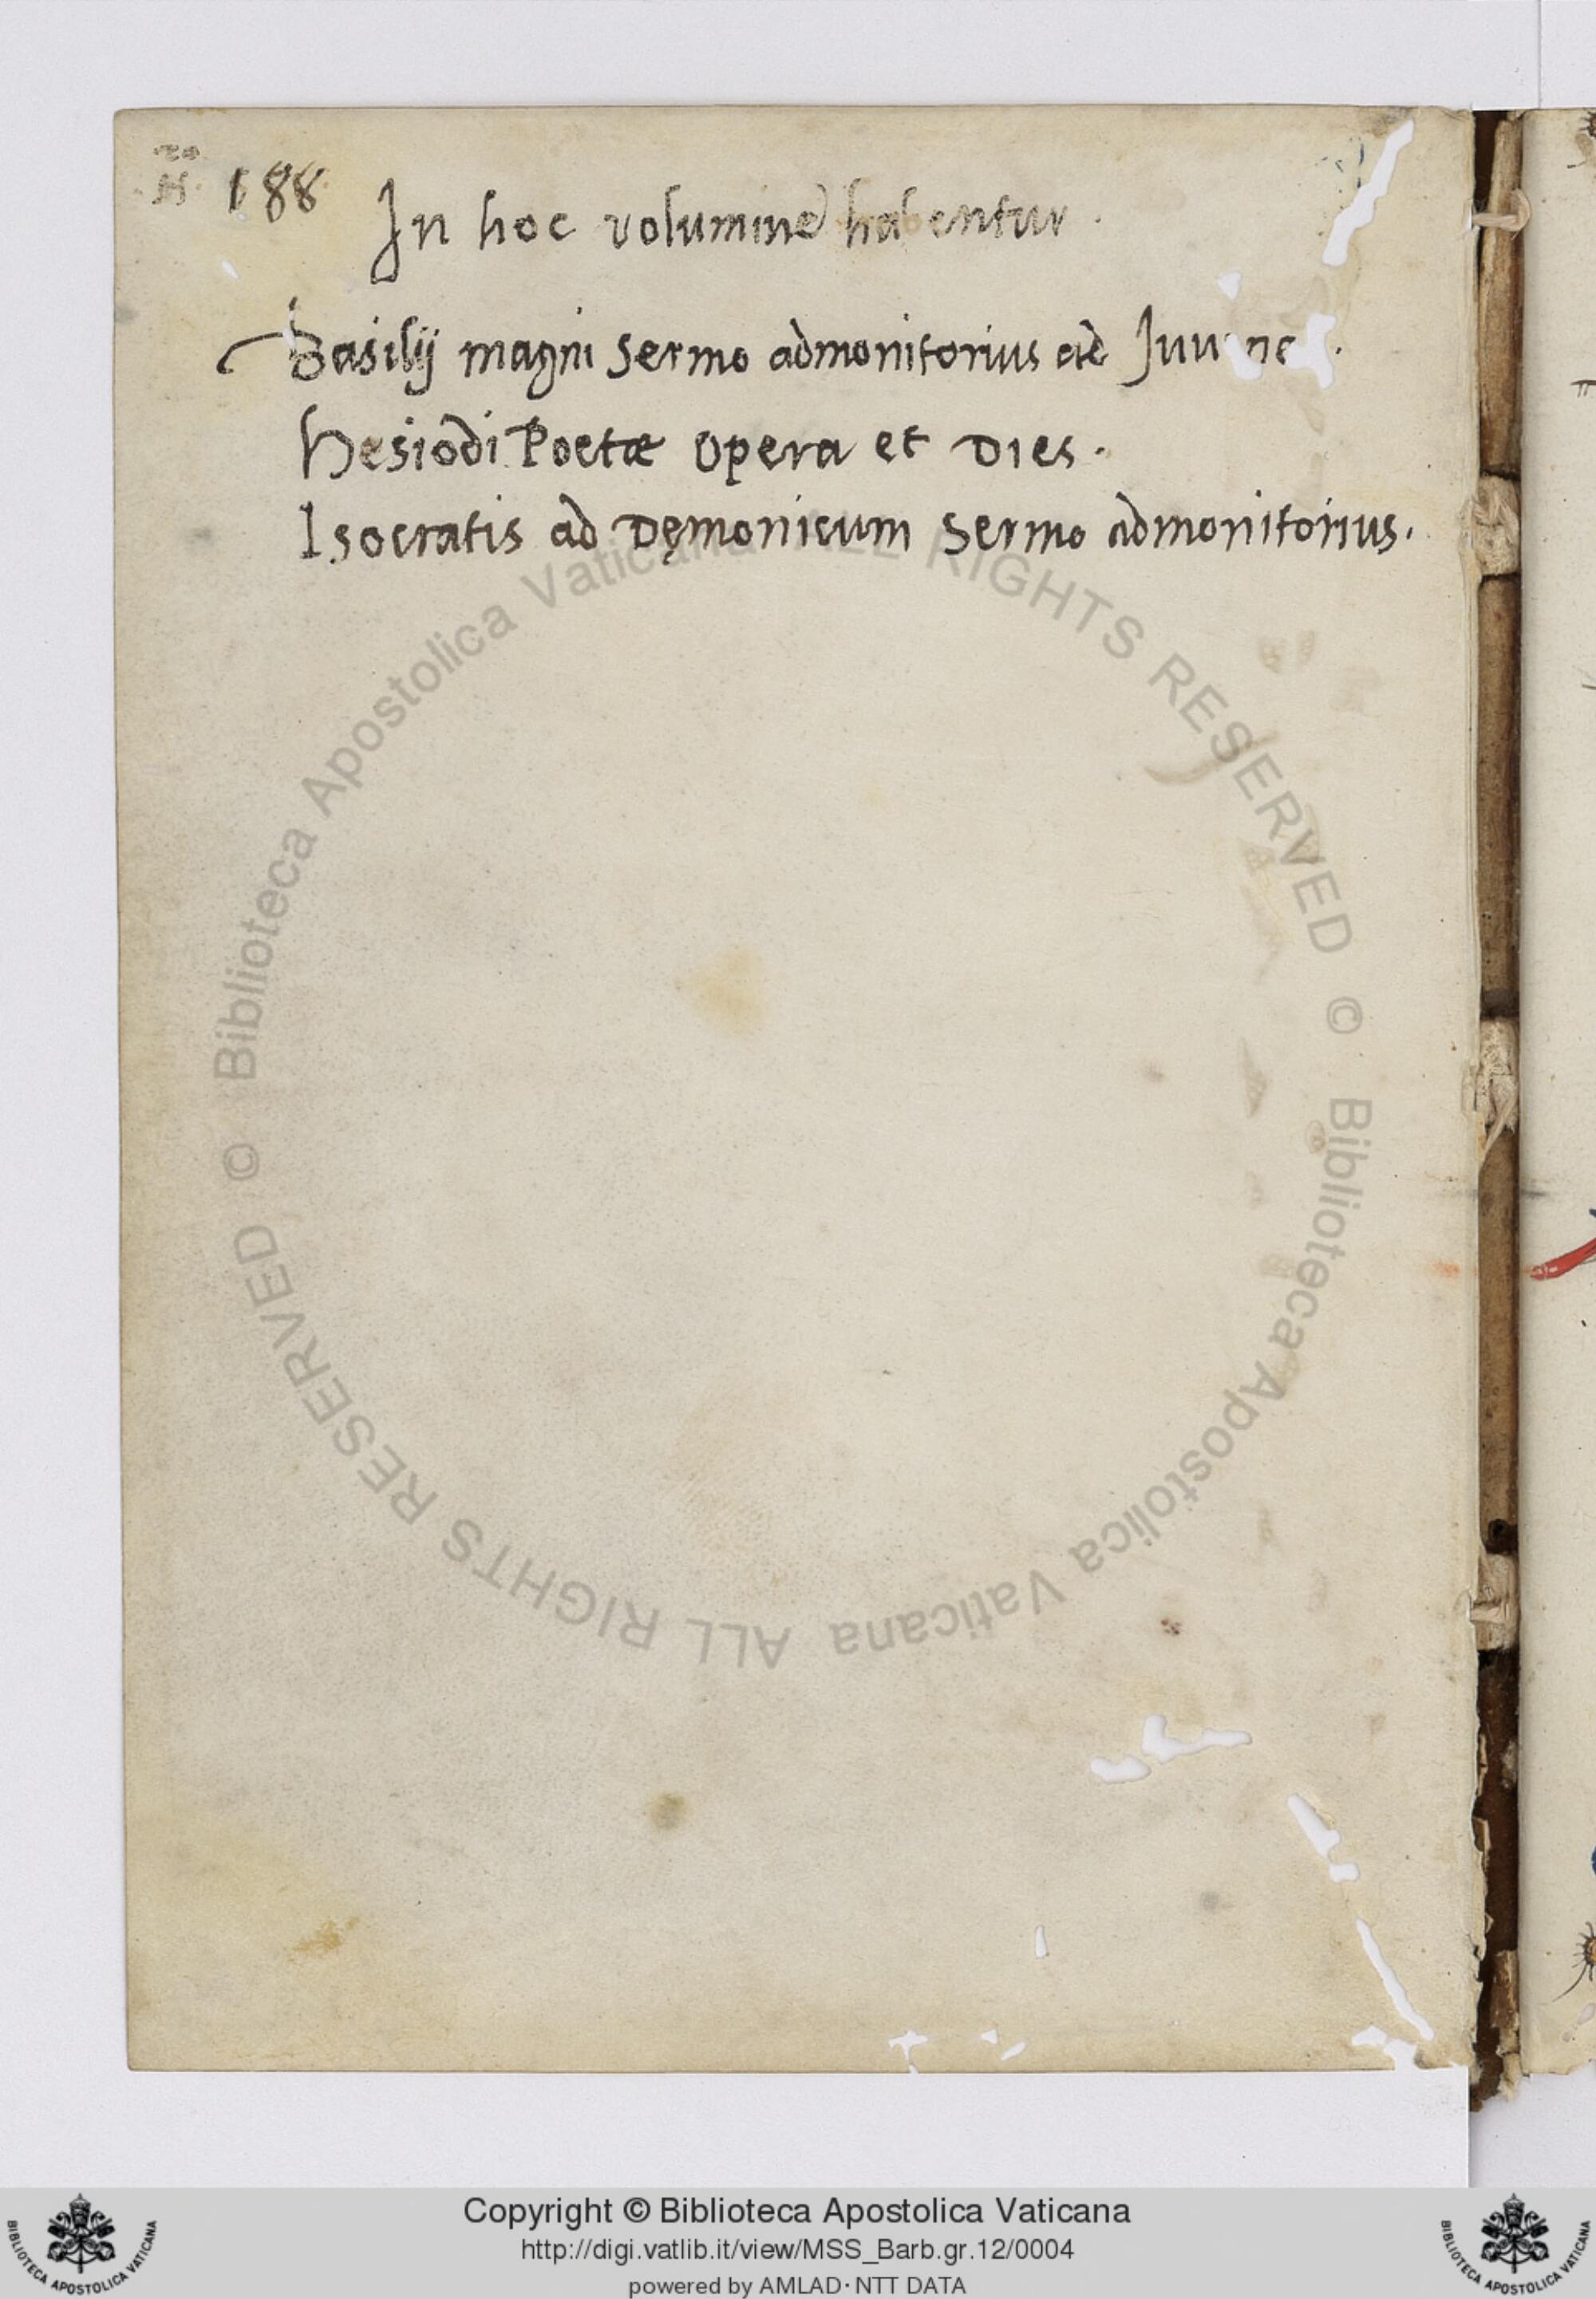 188
In hoc volumine habentur.
Basilij magni Sermo admonitorius ad
Hesiodi Poetæ Opera et Dies.
Isocratis ad Dęmonicum Sermo admonitorius.
© Biblioteca Apostolica Vaticana ALL RIGHTS RESERVED © Biblioteca Apostolica Vaticana ALL RIGHTS RESERVED
Copyright © Biblioteca Apostolica Vaticana
http://digi.vatlib.it/view/MSS_Barb.gr.12/0004
powered by AMLAD·NTT DATA
BIBLIOTECA APOSTOLICA VATICANA
BIBLIOTECA APOSTOLICA VATICANA